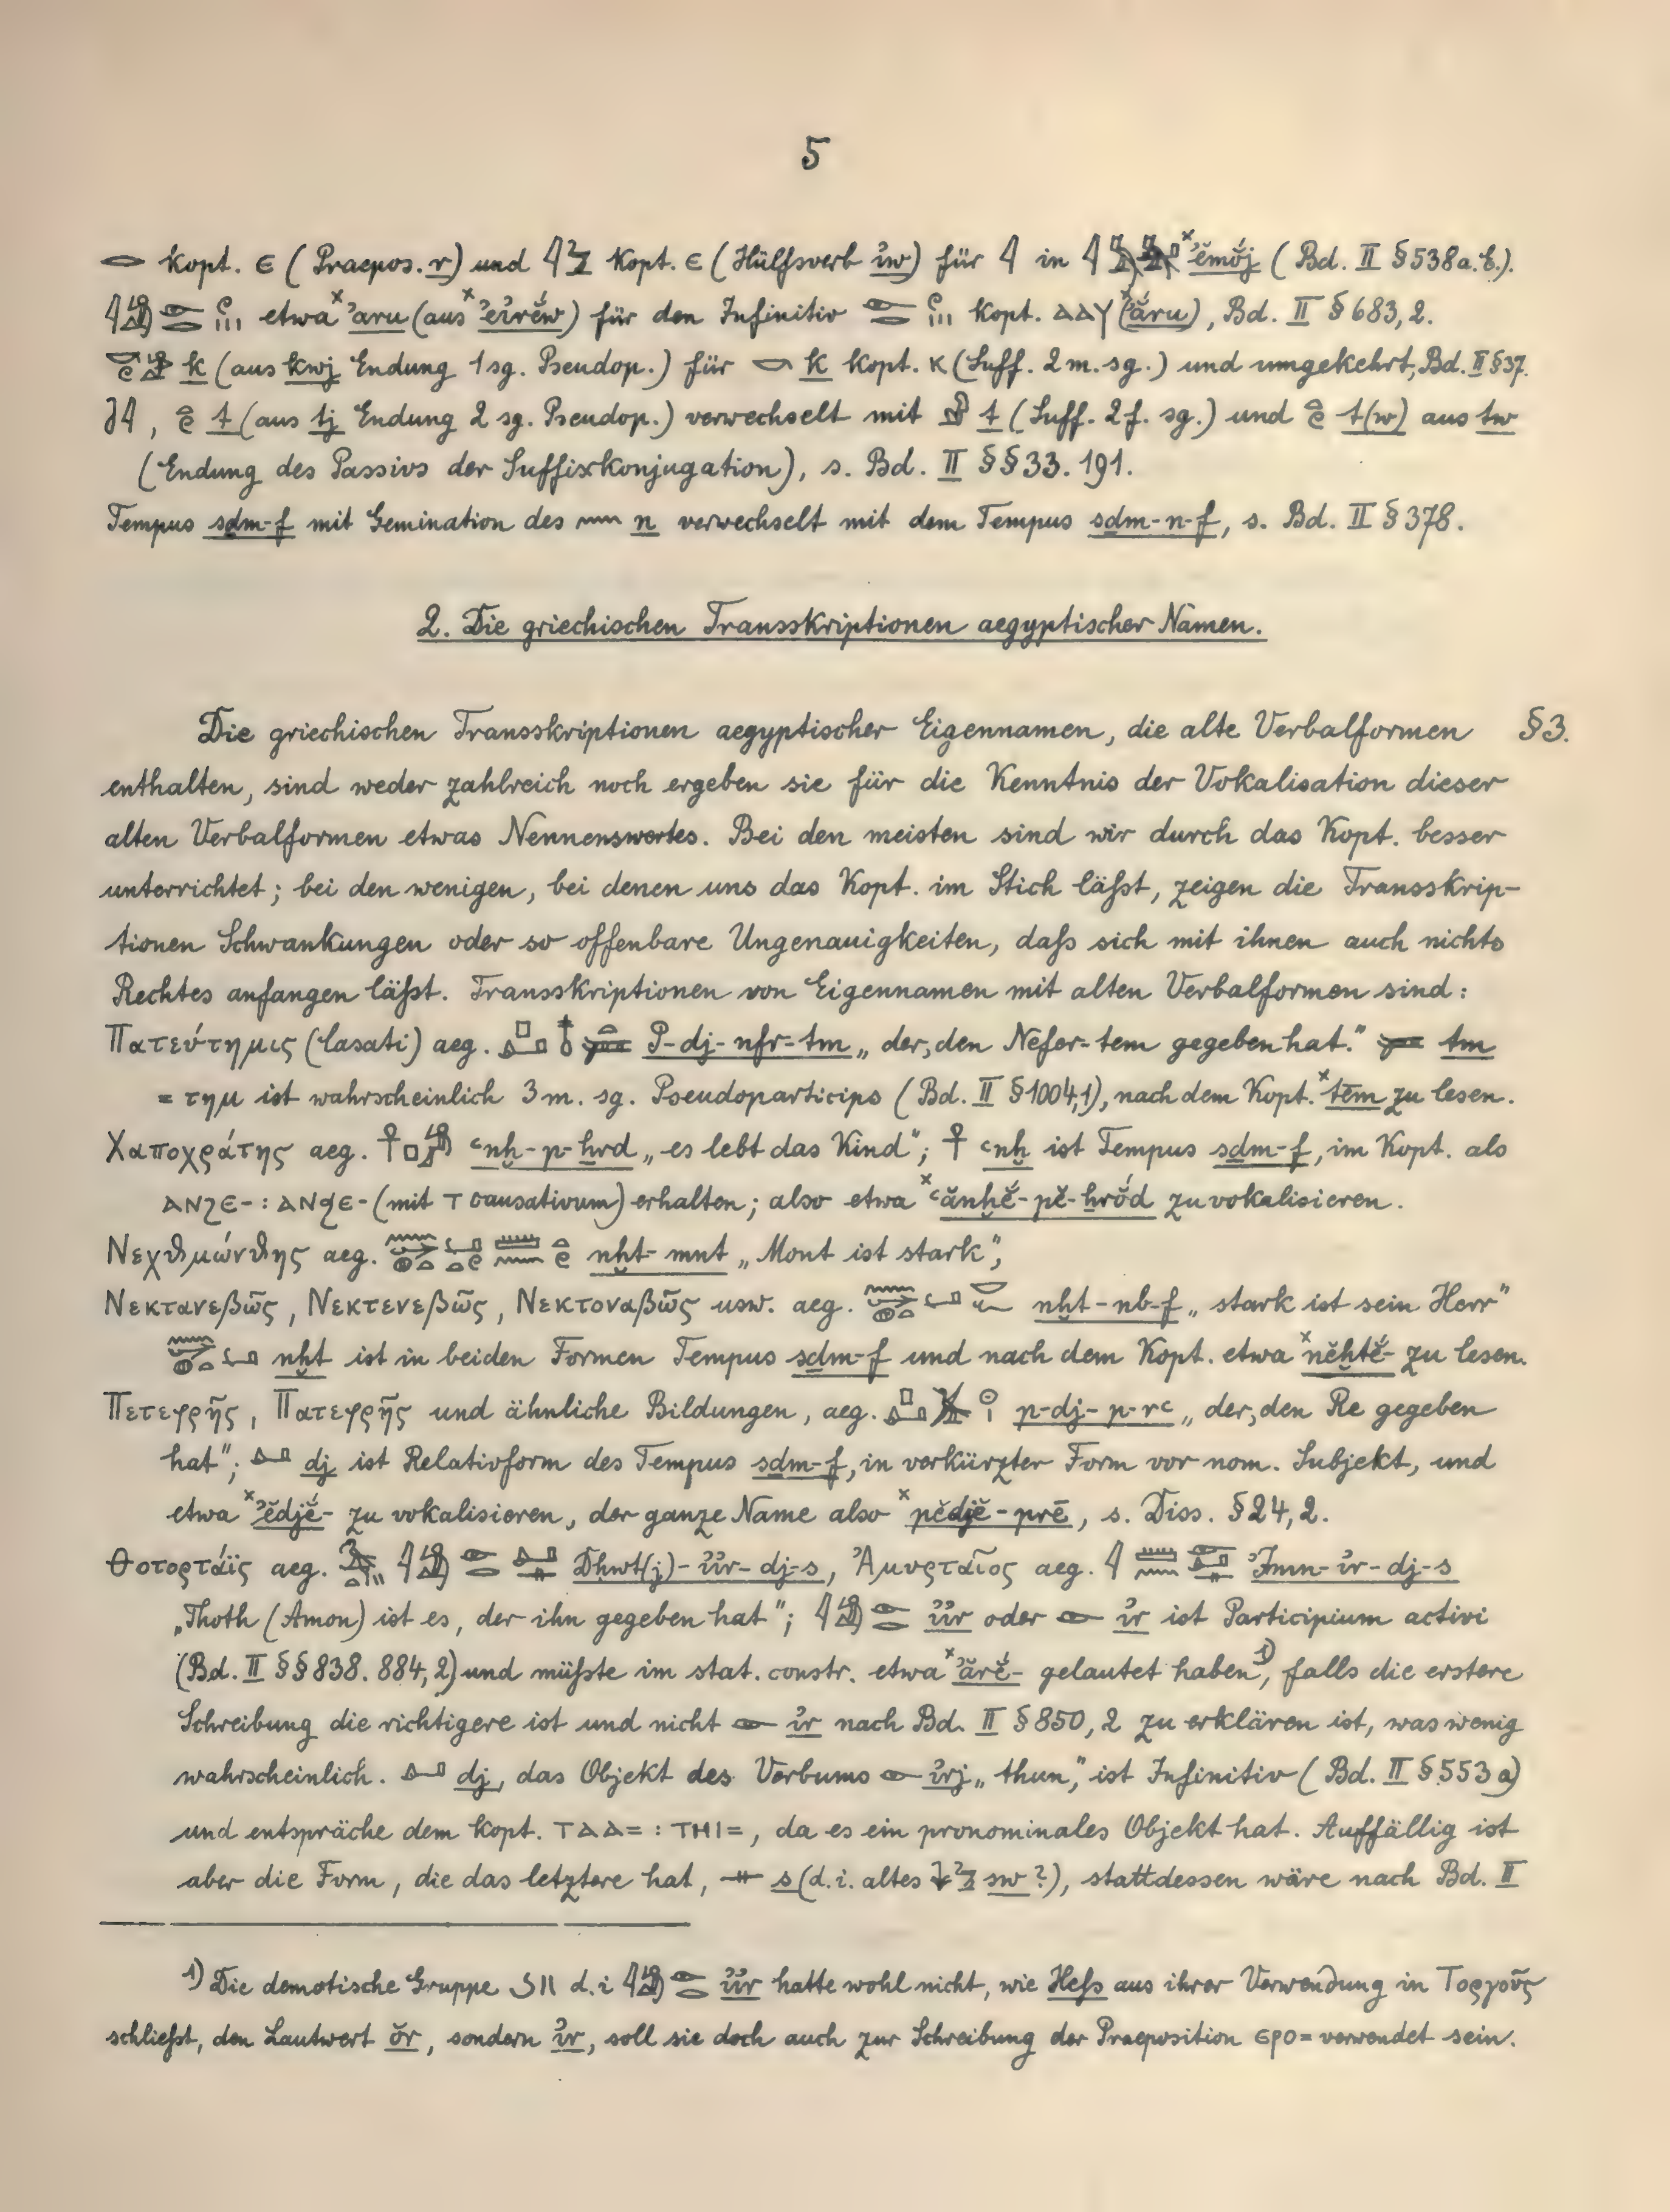 5
kopt. ⲉ (Praepos. r) und kopt. ⲉ (Hülfsverb ı͗w) für in ˣʾĕmŏ́j (Bd. II § 538 a. E.).
etwa ˣʾaru (aus ˣʾeı͗rĕ́w) für den Infinitiv kopt. ⲁⲁⲩ (ˣʾắru), Bd. II § 683, 2.
k (aus kwj Endung 1 sg. Pseudop.) für k kopt. ⲕ (Suff. 2 m. sg.) und umgekehrt, Bd. II § 37.
, t (aus tj Endung 2 sg. Pseudop.) verwechselt mit t (Suff. 2 f. sg.) und t(w) aus tw
(Endung des Passivs der Suffixkonjugation), s. Bd. II §§ 33. 191.
Tempus sḏm-f mit Gemination des n verwechselt mit dem Tempus sḏm-n-f, s. Bd. II § 378.
2. Die griechischen Transskriptionen aegyptischer Namen.
Die griechischen Transskriptionen aegyptischer Eigennamen, die alte Verbalformen § 3.
enthalten, sind weder zahlreich noch ergeben sie für die Kenntnis der Vokalisation dieser
alten Verbalformen etwas Nennenswertes. Bei den meisten sind wir durch das Kopt. besser
unterrichtet; bei den wenigen, bei denen uns das Kopt. im Stich läßt, zeigen die Transskrip-
tionen Schwankungen oder so offenbare Ungenauigkeiten, daß sich mit ihnen auch nichts
Rechtes anfangen läßt. Transskriptionen von Eigennamen mit alten Verbalformen sind:
Πατεύτημις (Casati) aeg. P-dj-nfr-tm „der, den Nefer-tem gegeben hat." tm
= τημ ist wahrscheinlich 3 m. sg. Pseudoparticips (Bd. II § 1004,1), nach dem Kopt. ˣtēm zu lesen.
Χαποχράτης aeg. ꜥnḫ-p-ẖrd „es lebt das Kind"; ꜥnḫ ist Tempus sḏm-f, im Kopt. als
ⲁⲛϩⲉ- : ⲁⲛϧⲉ- (mit ⲧ causativum) erhalten; also etwa ˣꜥănḫĕ́-pĕ-ẖrŏ́d zu vokalisieren.
Νεχθμώνθης aeg. nḫt-mnt „Mont ist stark",
Νεκτανεβῶς, Νεκτενεβῶς, Νεκτοναβῶς usw. aeg. nḫt-nb-f „stark ist sein Herr"
nḫt ist in beiden Formen Tempus sḏm-f und nach dem Kopt. etwa ˣnĕḫtĕ́- zu lesen.
Πετεφρῆς, Πατεφρῆς und ähnliche Bildungen, aeg. p-dj-p-rꜥ „der, den Re gegeben
hat"; dj ist Relativform des Tempus sḏm-f, in verkürzter Form vor nom. Subjekt, und
etwa ˣʾĕdjĕ́- zu vokalisieren, der ganze Name also ˣpĕdjĕ-prē, s. Diss. § 24, 2.
Θοτορτάϊς aeg. Ḏḥwt(j)-ı͗ı͗r-dj-s, Ἀμυρταῖος aeg. ʾImn-ı͗r-dj-s
„Thoth (Amon) ist es, der ihn gegeben hat"; ı͗ı͗r oder ı͗r ist Participium activi
(Bd. II §§ 838. 884, 2) und müßte im stat. constr. etwa ˣʾărĕ́- gelautet haben¹⁾, falls die erstere
Schreibung die richtigere ist und nicht ı͗r nach Bd. II § 850, 2 zu erklären ist, was wenig
wahrscheinlich. dj, das Objekt des Verbums ı͗rj „thun", ist Infinitiv (Bd. II § 553 a)
und entspräche dem kopt. ⲧⲁⲁ= : ⲧⲏⲓ=, da es ein pronominales Objekt hat. Auffällig ist
aber die Form, die das letztere hat, s (d. i. altes sw ?), stattdessen wäre nach Bd. II
¹⁾ Die demotische Gruppe d. i ı͗ı͗r hatte wohl nicht, wie Heß aus ihrer Verwendung in Τοργοῦς
schließt, den Lautwert ŏr, sondern ı͗r, soll sie doch auch zur Schreibung der Praeposition ⲉⲣⲟ= verwendet sein.